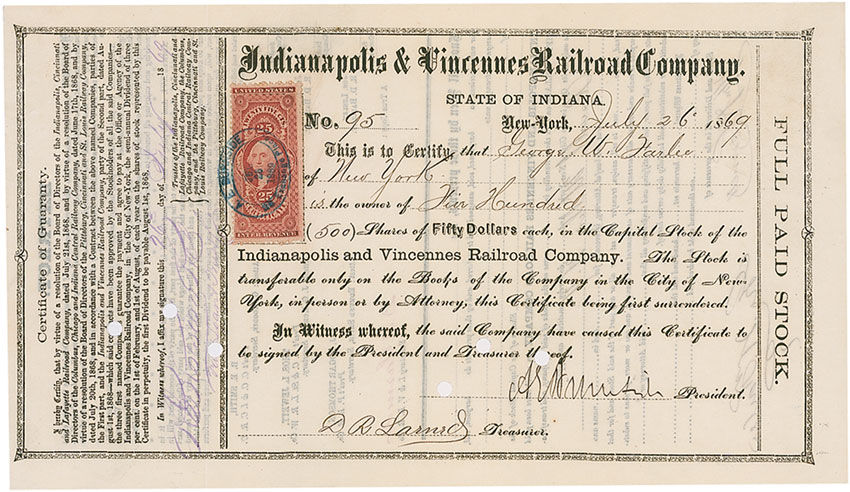 Indianapolis & Vincennes Railroad Company.
STATE OF INDIANA.
No. 95 New-York, July 26 1869
This is to Certify, that George W. Farlee
of New York
is the owner of Five Hundred
(500) Shares of Fifty Dollars each, in the Capital Stock of the
Indianapolis and Vincennes Railroad Company. The Stock is
transferable only on the Books of the Company in the City of New-
York, in person or by Attorney, this Certificate being first surrendered.
In Witness whereof, the said Company have caused this Certificate to
be signed by the President and Treasurer thereof.
President.
D R Larned Treasurer.
FULL PAID STOCK.
UNITED STATES
25
25
Certificate of Guaranty.
I hereby Certify, that by virtue of a resolution of the Board of Directors of the Indianapolis, Cincinnati
and Lafayette Railroad Company, dated July 21st, 1868, and by virtue of a resolution of the Board of
Directors of the Columbus, Chicago and Indiana Central Railway Company, dated June 17th, 1868, and by
virtue of a resolution of the Board of Directors of the Pittsburg, Cincinnati and St. Louis Railway Company,
dated July 20th, 1868, and in accordance with a Contract between the above named Companies, parties of
the First part, and the Indianapolis and Vincennes Railroad Company, party of the second part, dated Au-
gust 1st, 1868—which said contracts have been approved by the Stockholders of all the said Companies—
the three first named Companies guarantee the payment and agree to pay at the Office or Agency of the
Indianapolis and Vincennes Railroad Company, in the City of New-York, the semi-annual Dividend of three
per cent. on the 1st of February, and 1st of August, of each year on the shares of stock represented by this
Certificate in perpetuity, the first Dividend to be payable August 1st, 1868.
In Witness whereof, I affix my signature this 26 day of 1869
Trustee of the Indianapolis, Cincinnati and
Lafayette Railroad Company, the Columbus,
Chicago and Indiana Central Railway Com-
pany, and the Pittsburg, Cincinnati and St.
Louis Railway Company.